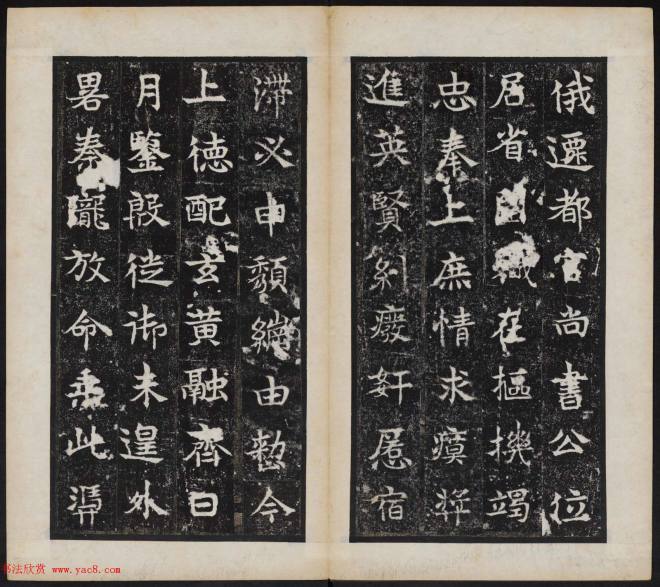 俄遷都官尚書公位
居省職在樞機竭
忠奉上庶情求瘼
進英賢糾廢奸慝宿
滯必申頹綱由整今
上德配玄黃融齊日
月鑒殷從御未遑外
畧秦隴放命乘此
书法欣赏 www.yac8.com